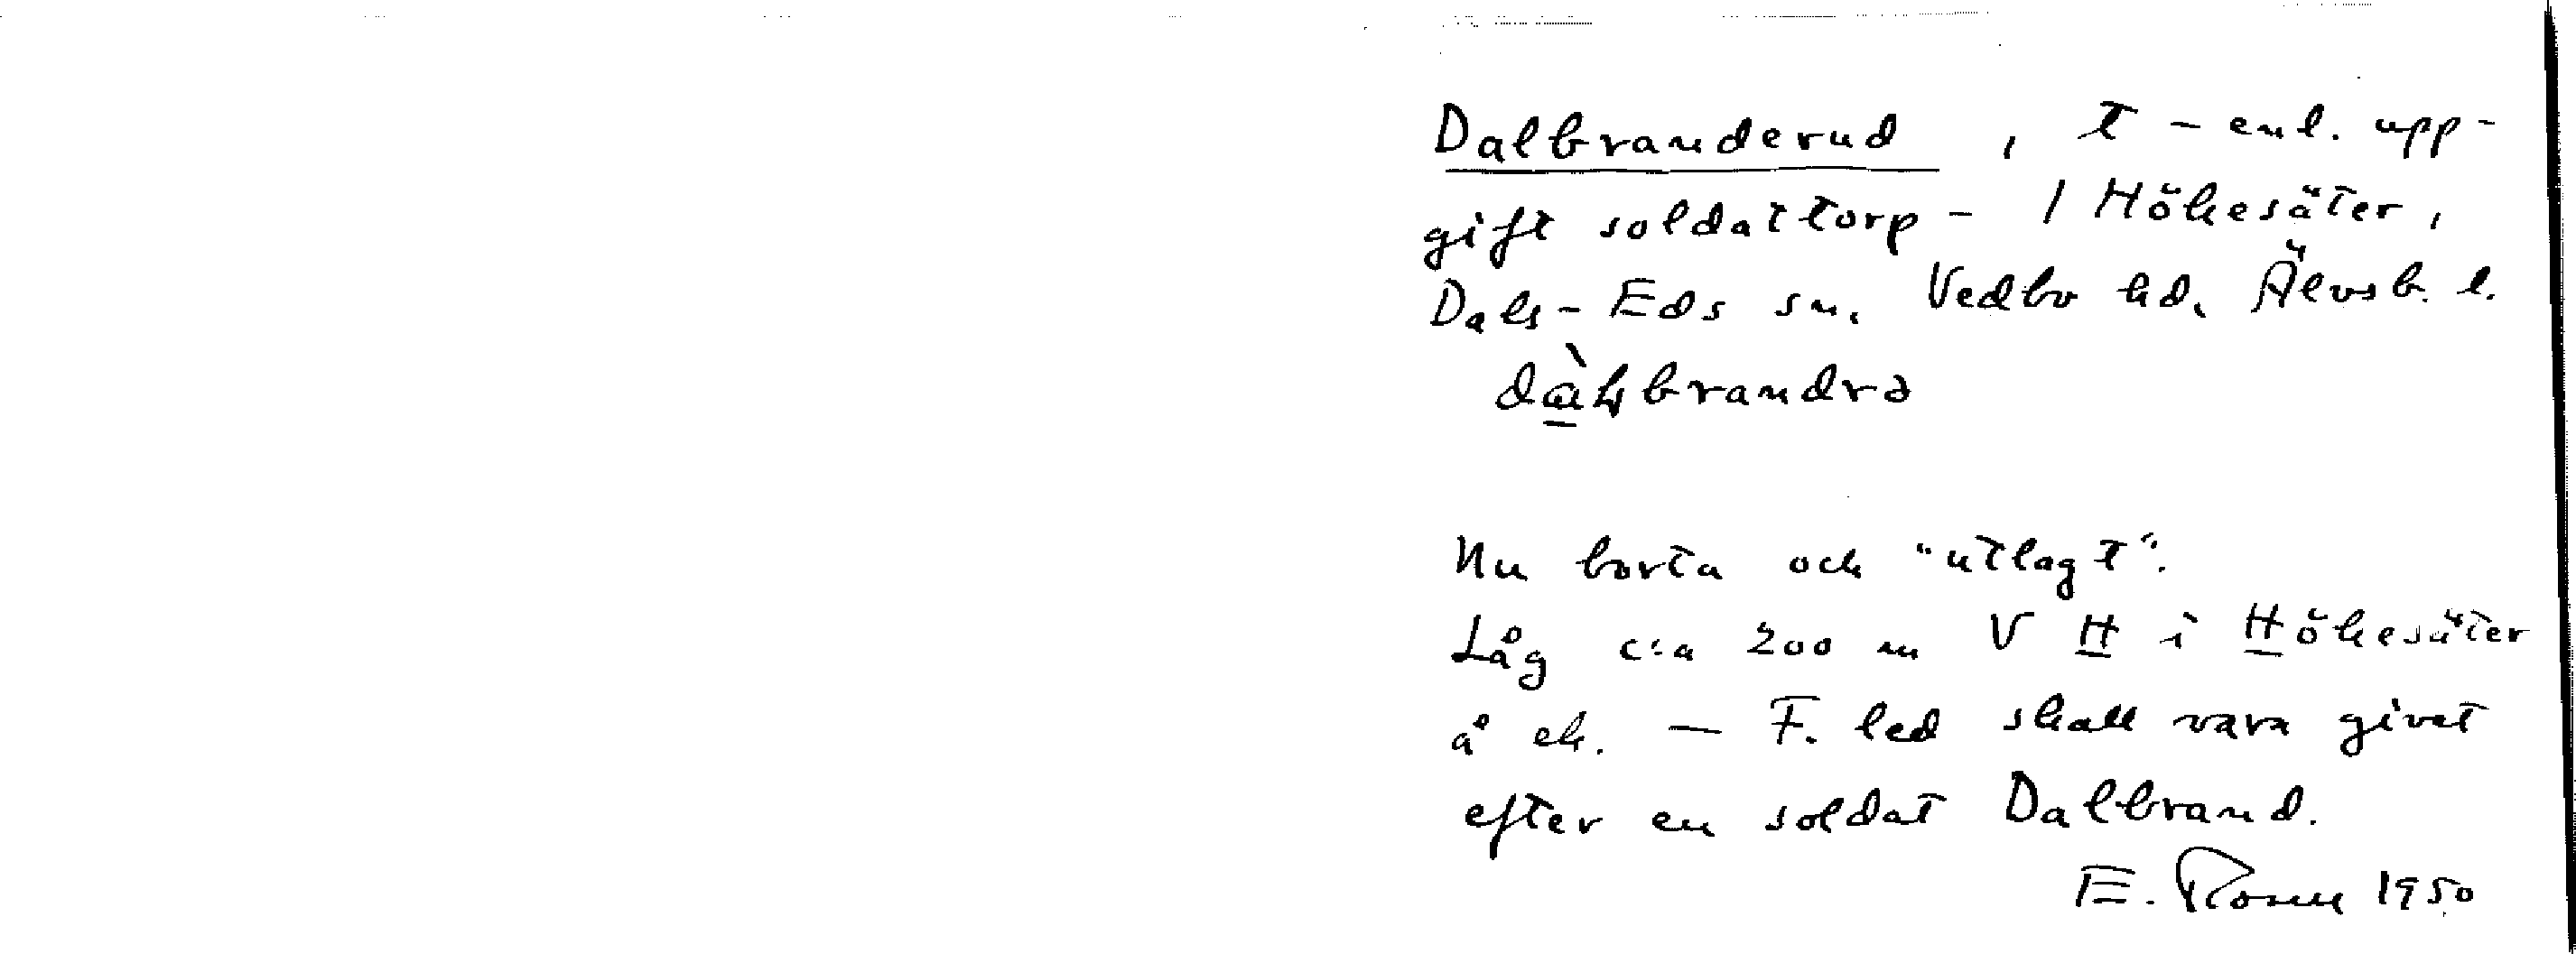 Dalbranderud , t - enl. upp-
gift soldattorp - / Hökesäter,
Dals-Eds sn. Vedbo hd. Älvsb. l.
dàɫbrandrə
Nu borta och "utlagt".
Låg c:a 200 m V H i Hökesäter
å ek. — F. led skall vara givet
efter en soldat Dalbrand.
E. 1950